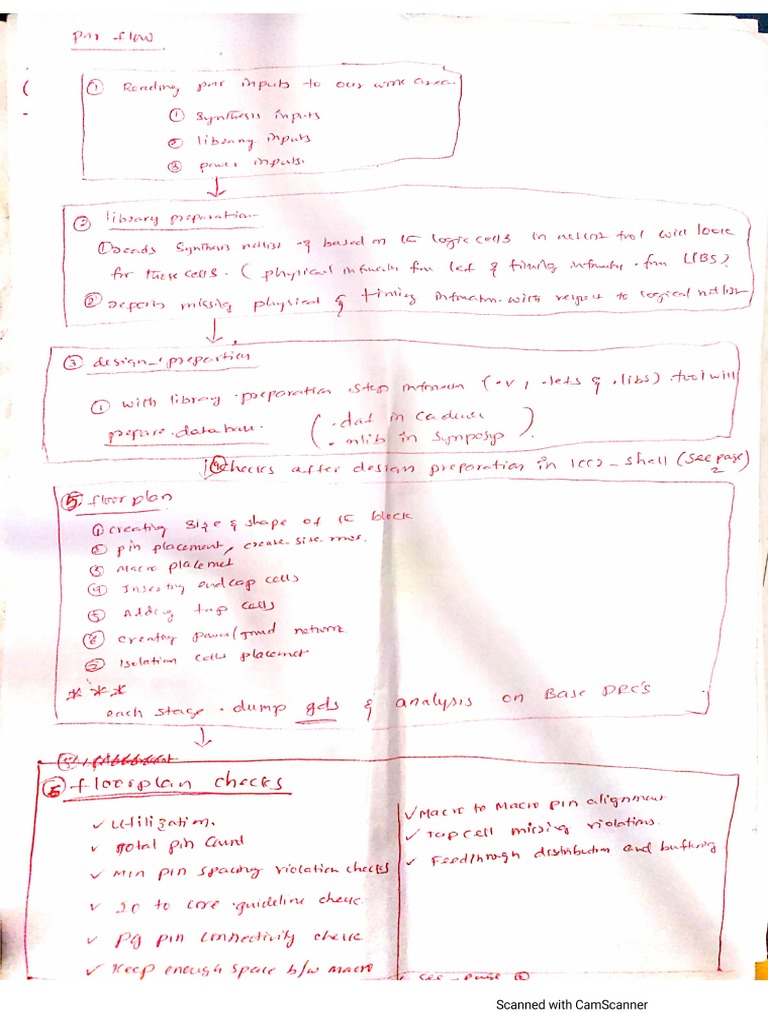 pnr flow
① Reading pnr inputs to our work area.
① Synthesis inputs
② library inputs
③ power inputs.
② library preparation
① reads Synthesis netlist & based on the logic cells in netlist tool will look
for these cells. ( physical informatn from lef & timing informatn. from LIBS)
② reports missing physical & timing informatn. with respect to logical netlist
③ design_preparation
① with library preparation step information (.v, .lefs & .libs) tool will
prepare database. ( .dat in Cadence
.nlib in Synopsys ).
④ Checks after design preparation in icc2_shell (see page 2)
5. floorplan
① creating size & shape of the block
② pin placement, create_site rows.
③ Macro placemet
④ Inserting endcap cells
⑤ Adding tap cells
⑥ creating power/grond network
Isolation cells placemet
* * *
each stage dump gds & analysis on Base DRC's
⑥ floorplan checks
✓ Utilization.
✓ total pin count
✓ Min pin spacing violation checks
✓ IO to core guideline check
✓ PG pin connectivity check
✓ Keep enough space b/w macro
✓ Macro to Macro pin alignment
✓ Tap cell missing violations.
✓ Feedthrough distribution and buffering
see page
Scanned with CamScanner